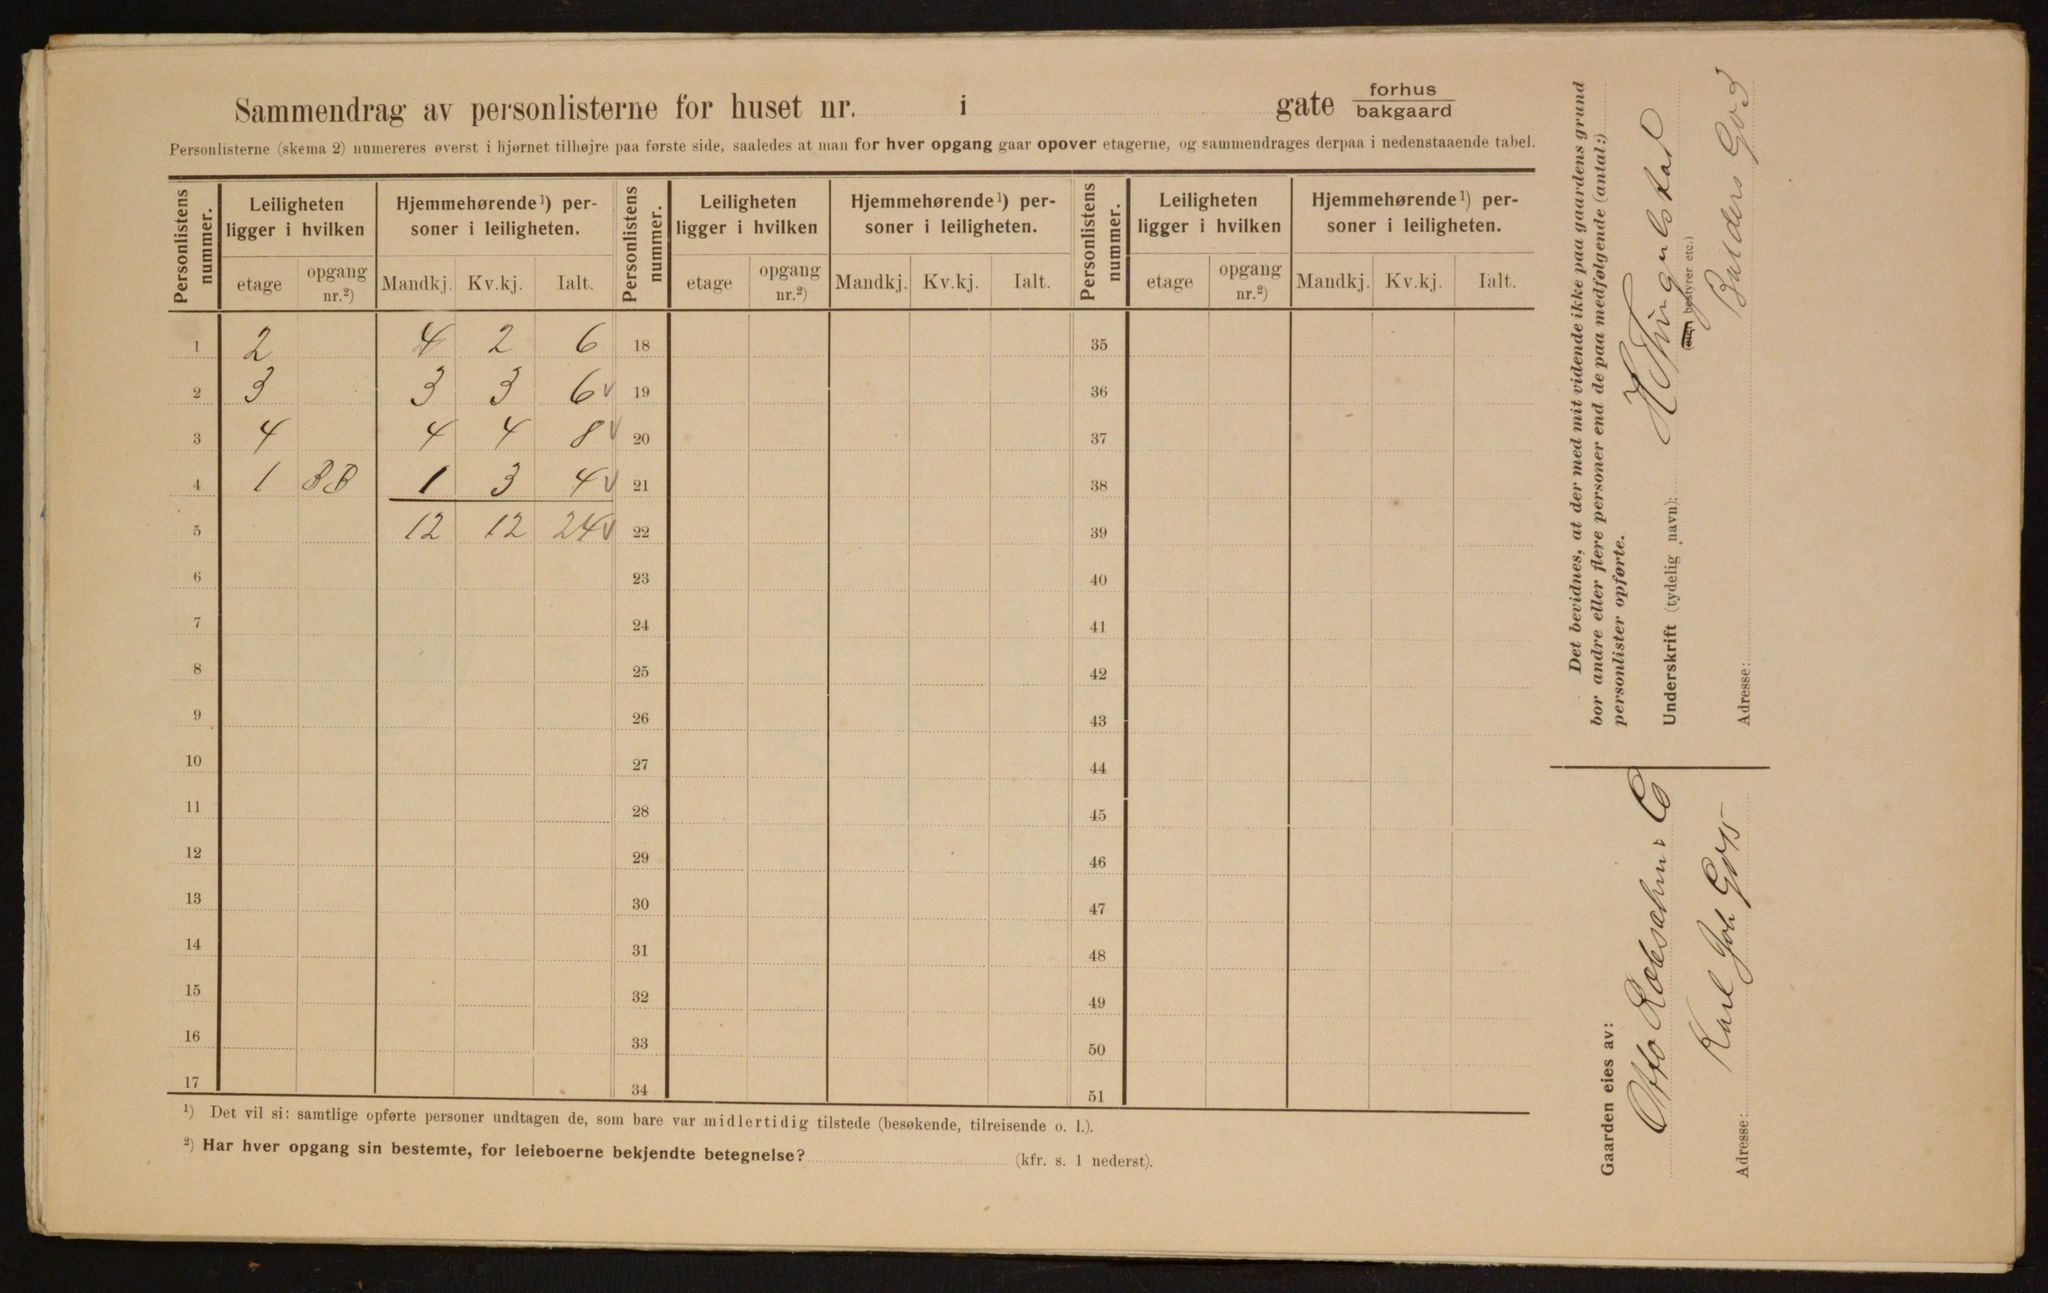 Sammendrag av personlisterne for huset nr. i gate forhus
bakgaard
Personlisterne (skema 2) numereres øverst i hjørnet tilhøjre paa første side, saaledes at man for hver opgang gaar opover etagerne, og sammendrages derpaa i nedenstaaende tabel.
Personlistens nummer. Leiligheten ligger i hvilken Hjemmehørende¹) per-
soner i leiligheten. Personlistens nummer. Leiligheten ligger i hvilken Hjemmehørende¹) per-
soner i leiligheten. Personlistens nummer. Leiligheten ligger i hvilken Hjemmehørende¹) per-
soner i leiligheten.
etage opgang nr.²) Mandkj. Kv.kj. Ialt. etage opgang nr.²) Mandkj. Kv.kj. Ialt. etage opgang nr.²) Mandkj. Kv.kj. Ialt.
1 2 4 2 6 18 35
2 3 3 3 6 19 36
3 4 4 4 8 20 37
4 1 1 3 4 21 38
5 12 12 24 22 39
6 23 40
7 24 41
8 25 42
9 26 43
10 27 44
11 28 45
12 29 46
13 30 47
14 31 48
15 32 49
16 33 50
17 34 51
¹) Det vil si: samtlige opførte personer undtagen de, som bare var midlertidig tilstede (besøkende, tilreisende o. l.).
²) Har hver opgang sin bestemte, for leieboerne bekjendte betegnelse? (kfr. s. 1 nederst).
Det bevidnes, at der med mit vidende ikke paa gaardens grund
bor andre eller flere personer end de paa medfølgende (antal:)
personlister opførte.
Underskrift (tydelig navn):
bestyrer etc.)
Adresse:
Gaarden eies av:
Otto Robsahm & Co
Adresse: Karl Joh